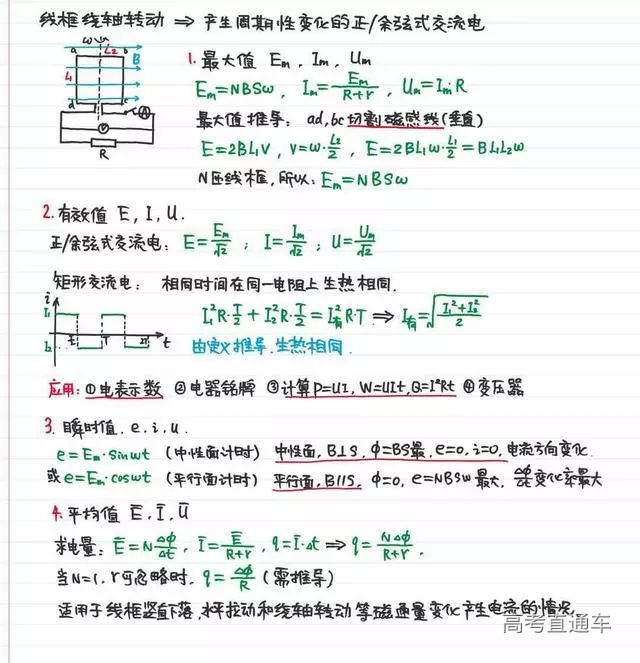 线框绕轴转动 ⇒ 产生周期性变化的正/余弦式交流电
ω
a L2 b B
L1
d c
A
V
R
1. 最大值 Em, Im, Um
Em=NBSω, Im=Em/(R+r), Um=Im·R
最大值推导: ad, bc切割磁感线(垂直)
E=2BL1V, v=ω·L2/2, E=2BL1ω·L2/2=BL1L2ω
N匝线框, 所以: Em=NBSω
2. 有效值 E, I, U.
正/余弦式交流电: E=Em/√2; I=Im/√2; U=Um/√2
矩形交流电: 相同时间在同一电阻上生热相同.
i
I1
I2
T/2 T 2T t
I1²R·T/2+I2²R·T/2=I有²R·T ⇒ I有=√((I1²+I2²)/2)
由定义推导.生热相同.
应用: ①电表示数 ②电器铭牌 ③计算P=UI, W=UIt, Q=I²Rt ④变压器
3. 瞬时值. e. i. u.
e=Em·sinωt (中性面计时) 中性面, B⊥S, ϕ=BS最, e=0, i=0, 电流方向变化.
或e=Em·cosωt (平行面计时) 平行面, B∥S, ϕ=0, e=NBSω最大, Δϕ/Δt变化率最大
4. 平均值 Ē, Ī, Ū
求电量: Ē=NΔϕ/Δt, Ī=Ē/(R+r), q=Ī·Δt ⇒ q=NΔϕ/(R+r),
当N=1, r可忽略时, q=Δϕ/R (需推导)
适用于线框竖直下落, 水平拉动和绕轴转动等磁通量变化产生电流的情况.
高考直通车